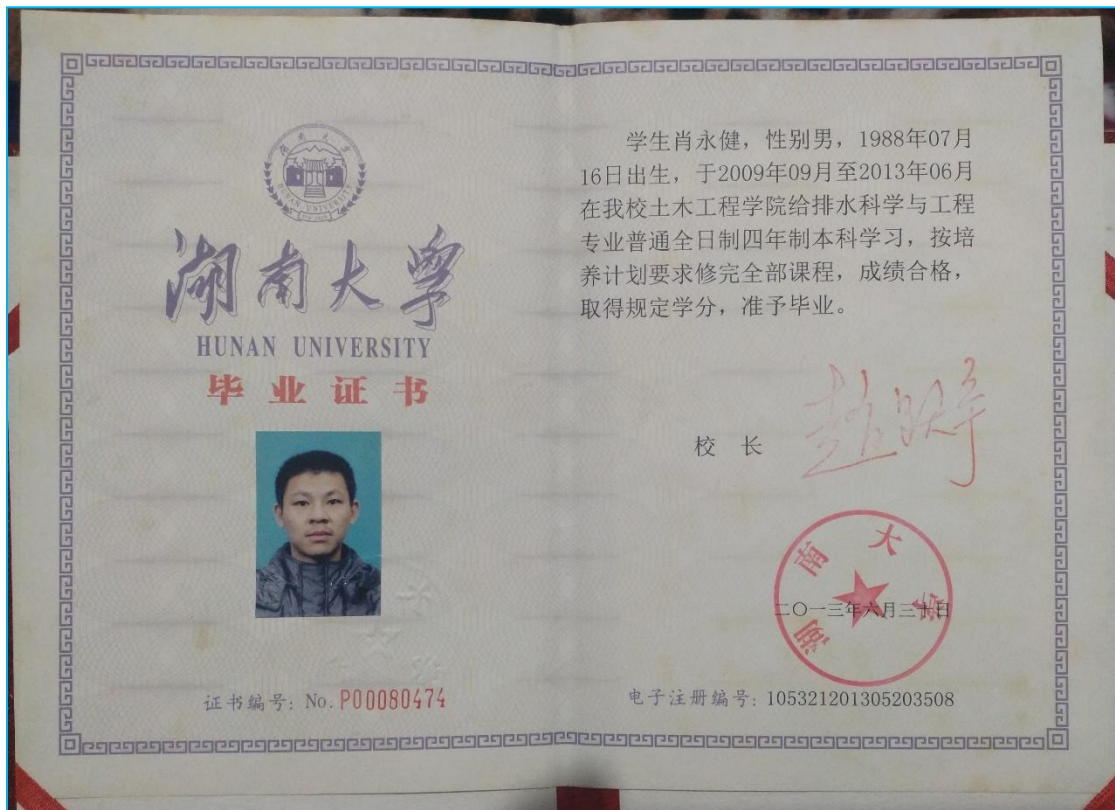 湖南大学
HUNAN UNIVERSITY
湖南大学
HUNAN UNIVERSITY
毕业证书
证书编号: No. P00080474
学生肖永健，性别男，1988年07月
16日出生，于2009年09月至2013年06月
在我校土木工程学院给排水科学与工程
专业普通全日制四年制本科学习，按培
养计划要求修完全部课程，成绩合格，
取得规定学分，准予毕业。
校 长
湖南大学
二〇一三年六月三十日
电子注册编号: 105321201305203508